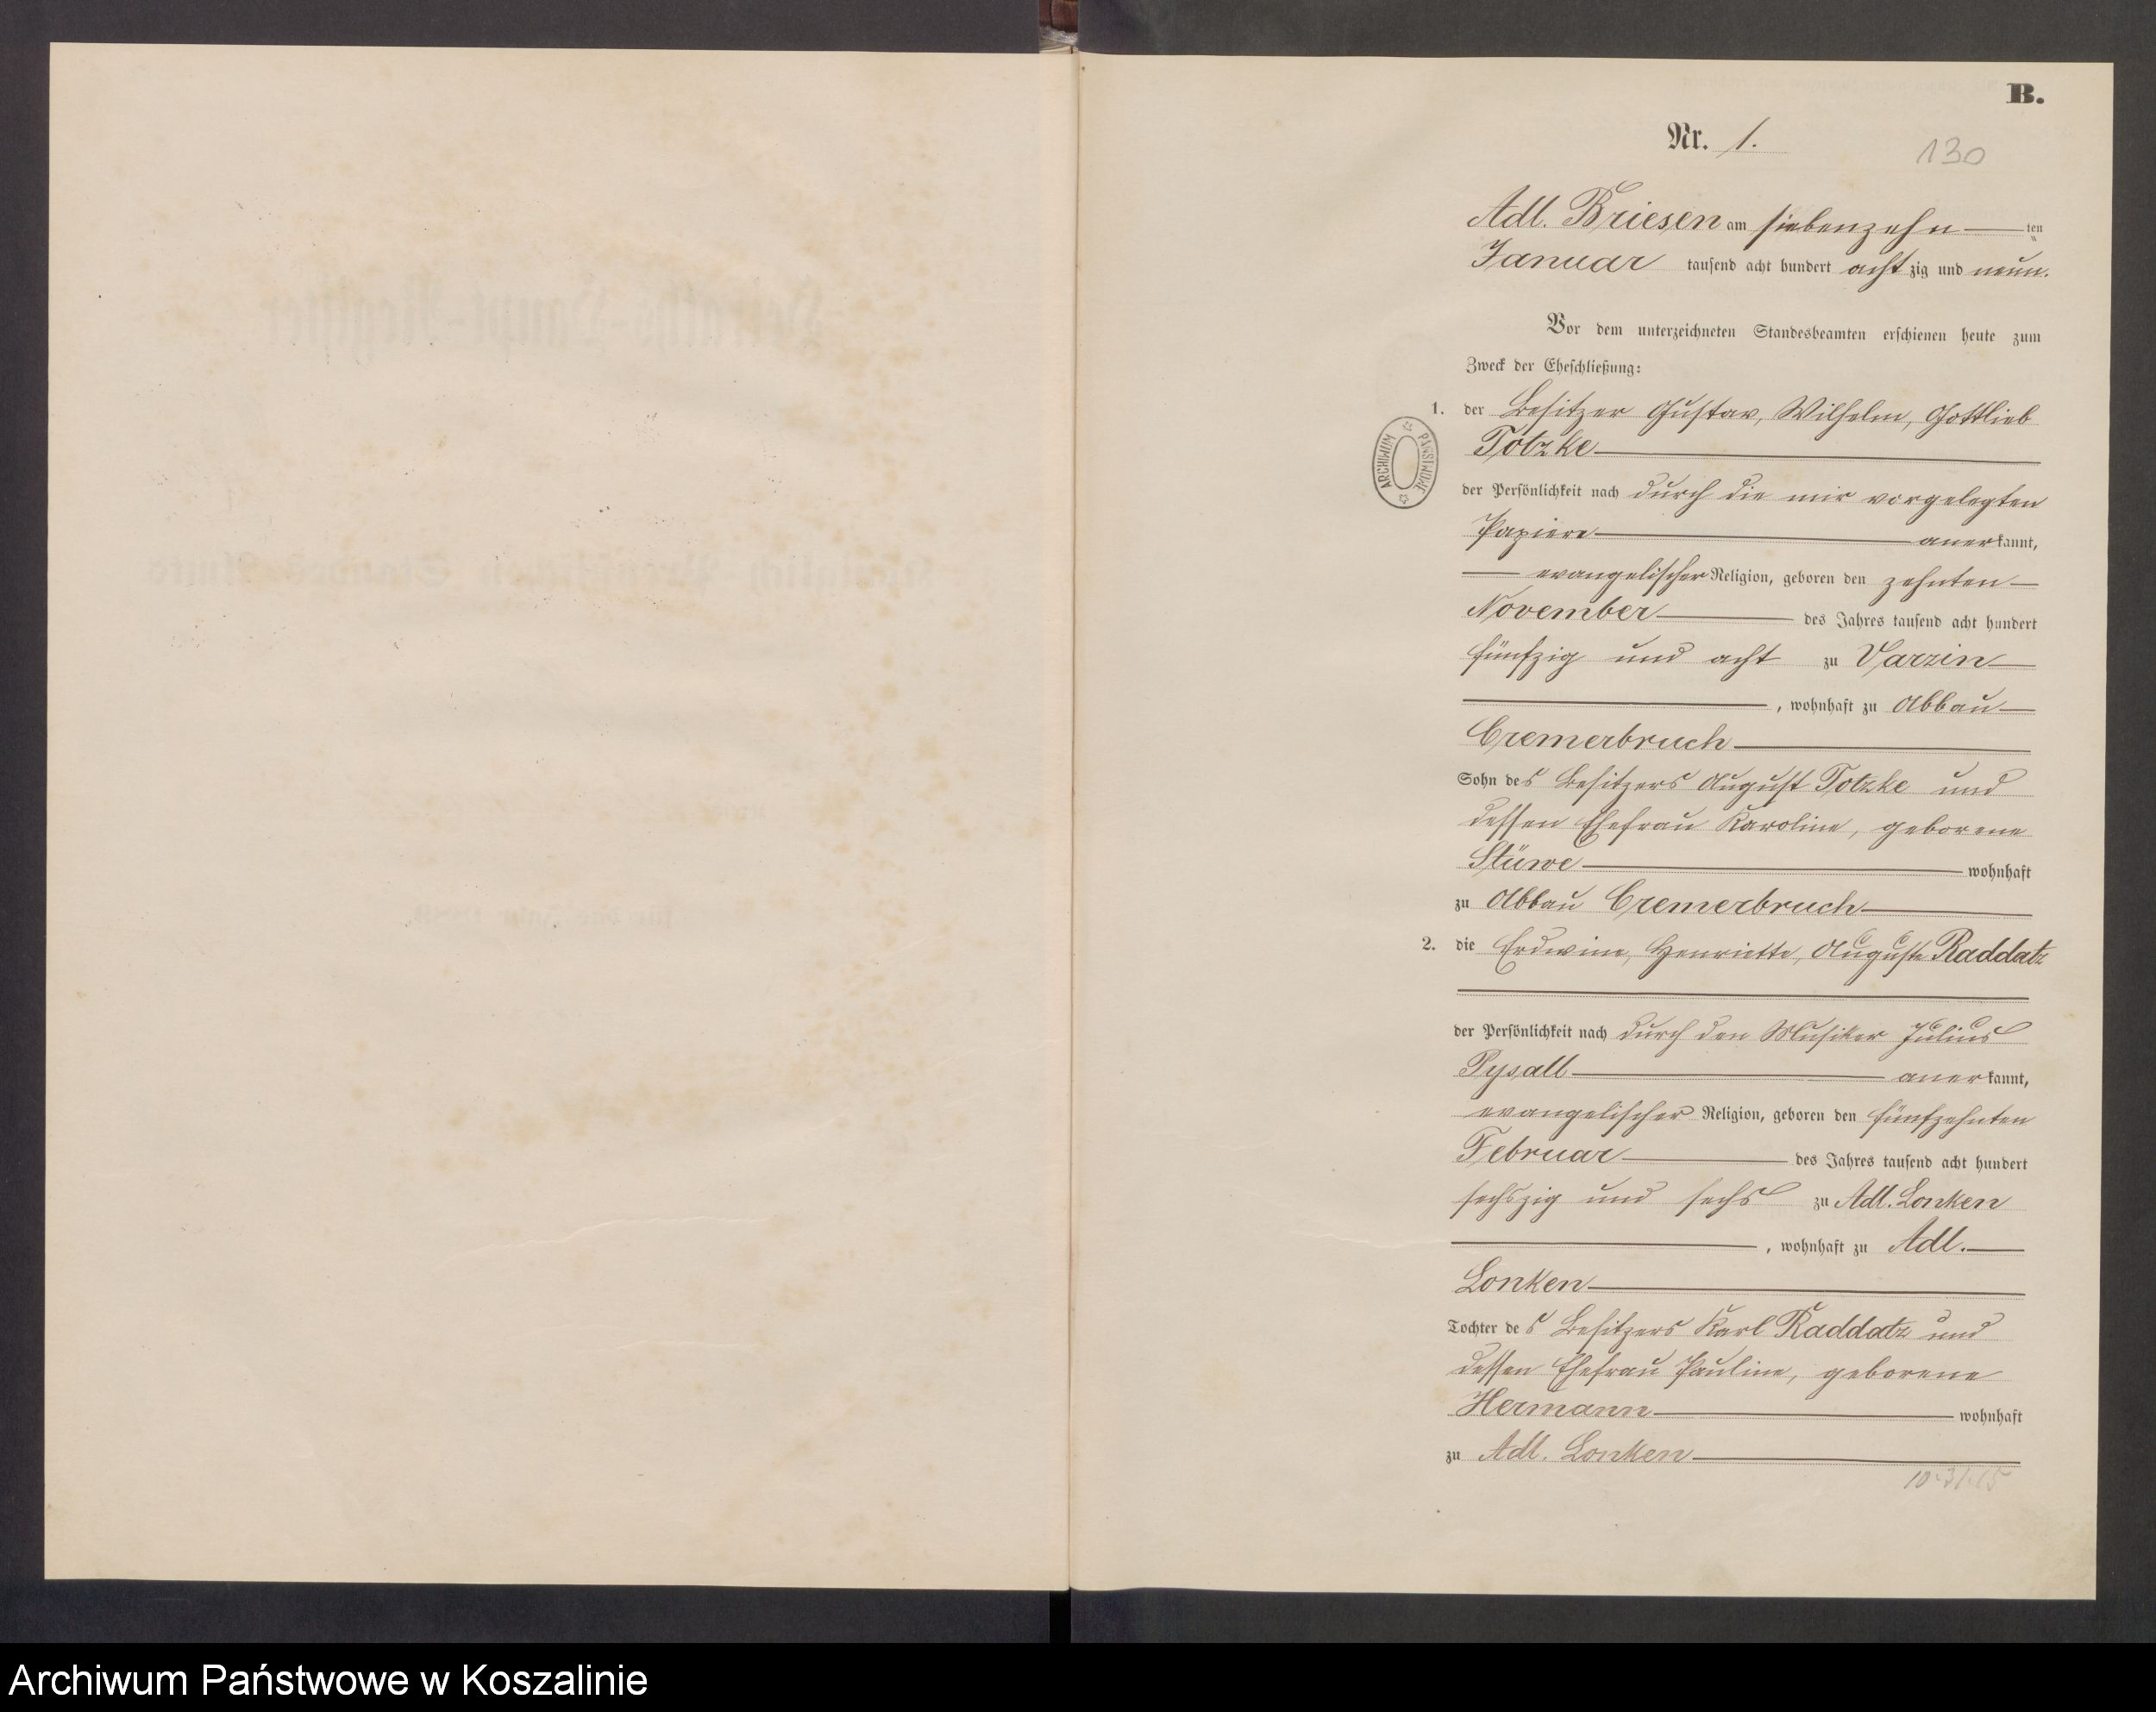 B.
Nr. 1.
130
Adl. Briesen am siebenzehn ten
Januar tausend acht hundert acht zig und neun.
Vor dem unterzeichneten Standesbeamten erschienen heute zum
Zweck der Eheschließung:
1. der Besitzer Gustav, Wilhelm, Gottlieb
Totzke
der Persönlichkeit nach durch die mir vorgelegten
Papiere anerkannt,
evangelischer Religion, geboren den zehnten
November des Jahres tausend acht hundert
fünfzig und acht zu Varzin
, wohnhaft zu Abbau
Cremerbruch
Sohn des Besitzers August Totzke und
dessen Ehefrau Karoline, geborene
Stüwe wohnhaft
zu Abbau Cremerbruch
2. die Erdwine, Henriette, Auguste Raddatz
der Persönlichkeit nach durch den Musiker Julius
Pysall anerkannt,
evangelischer Religion, geboren den fünfzehnten
Februar des Jahres tausend acht hundert
sechszig und sechs zu Adl. Lonken
, wohnhaft zu Adl.
Lonken
Tochter des Besitzers Karl Raddatz und
dessen Ehefrau Pauline, geborene
Hermann wohnhaft
zu Adl. Lonken
ARCHIWUM PAŃSTWOWE
Archiwum Państwowe w Koszalinie